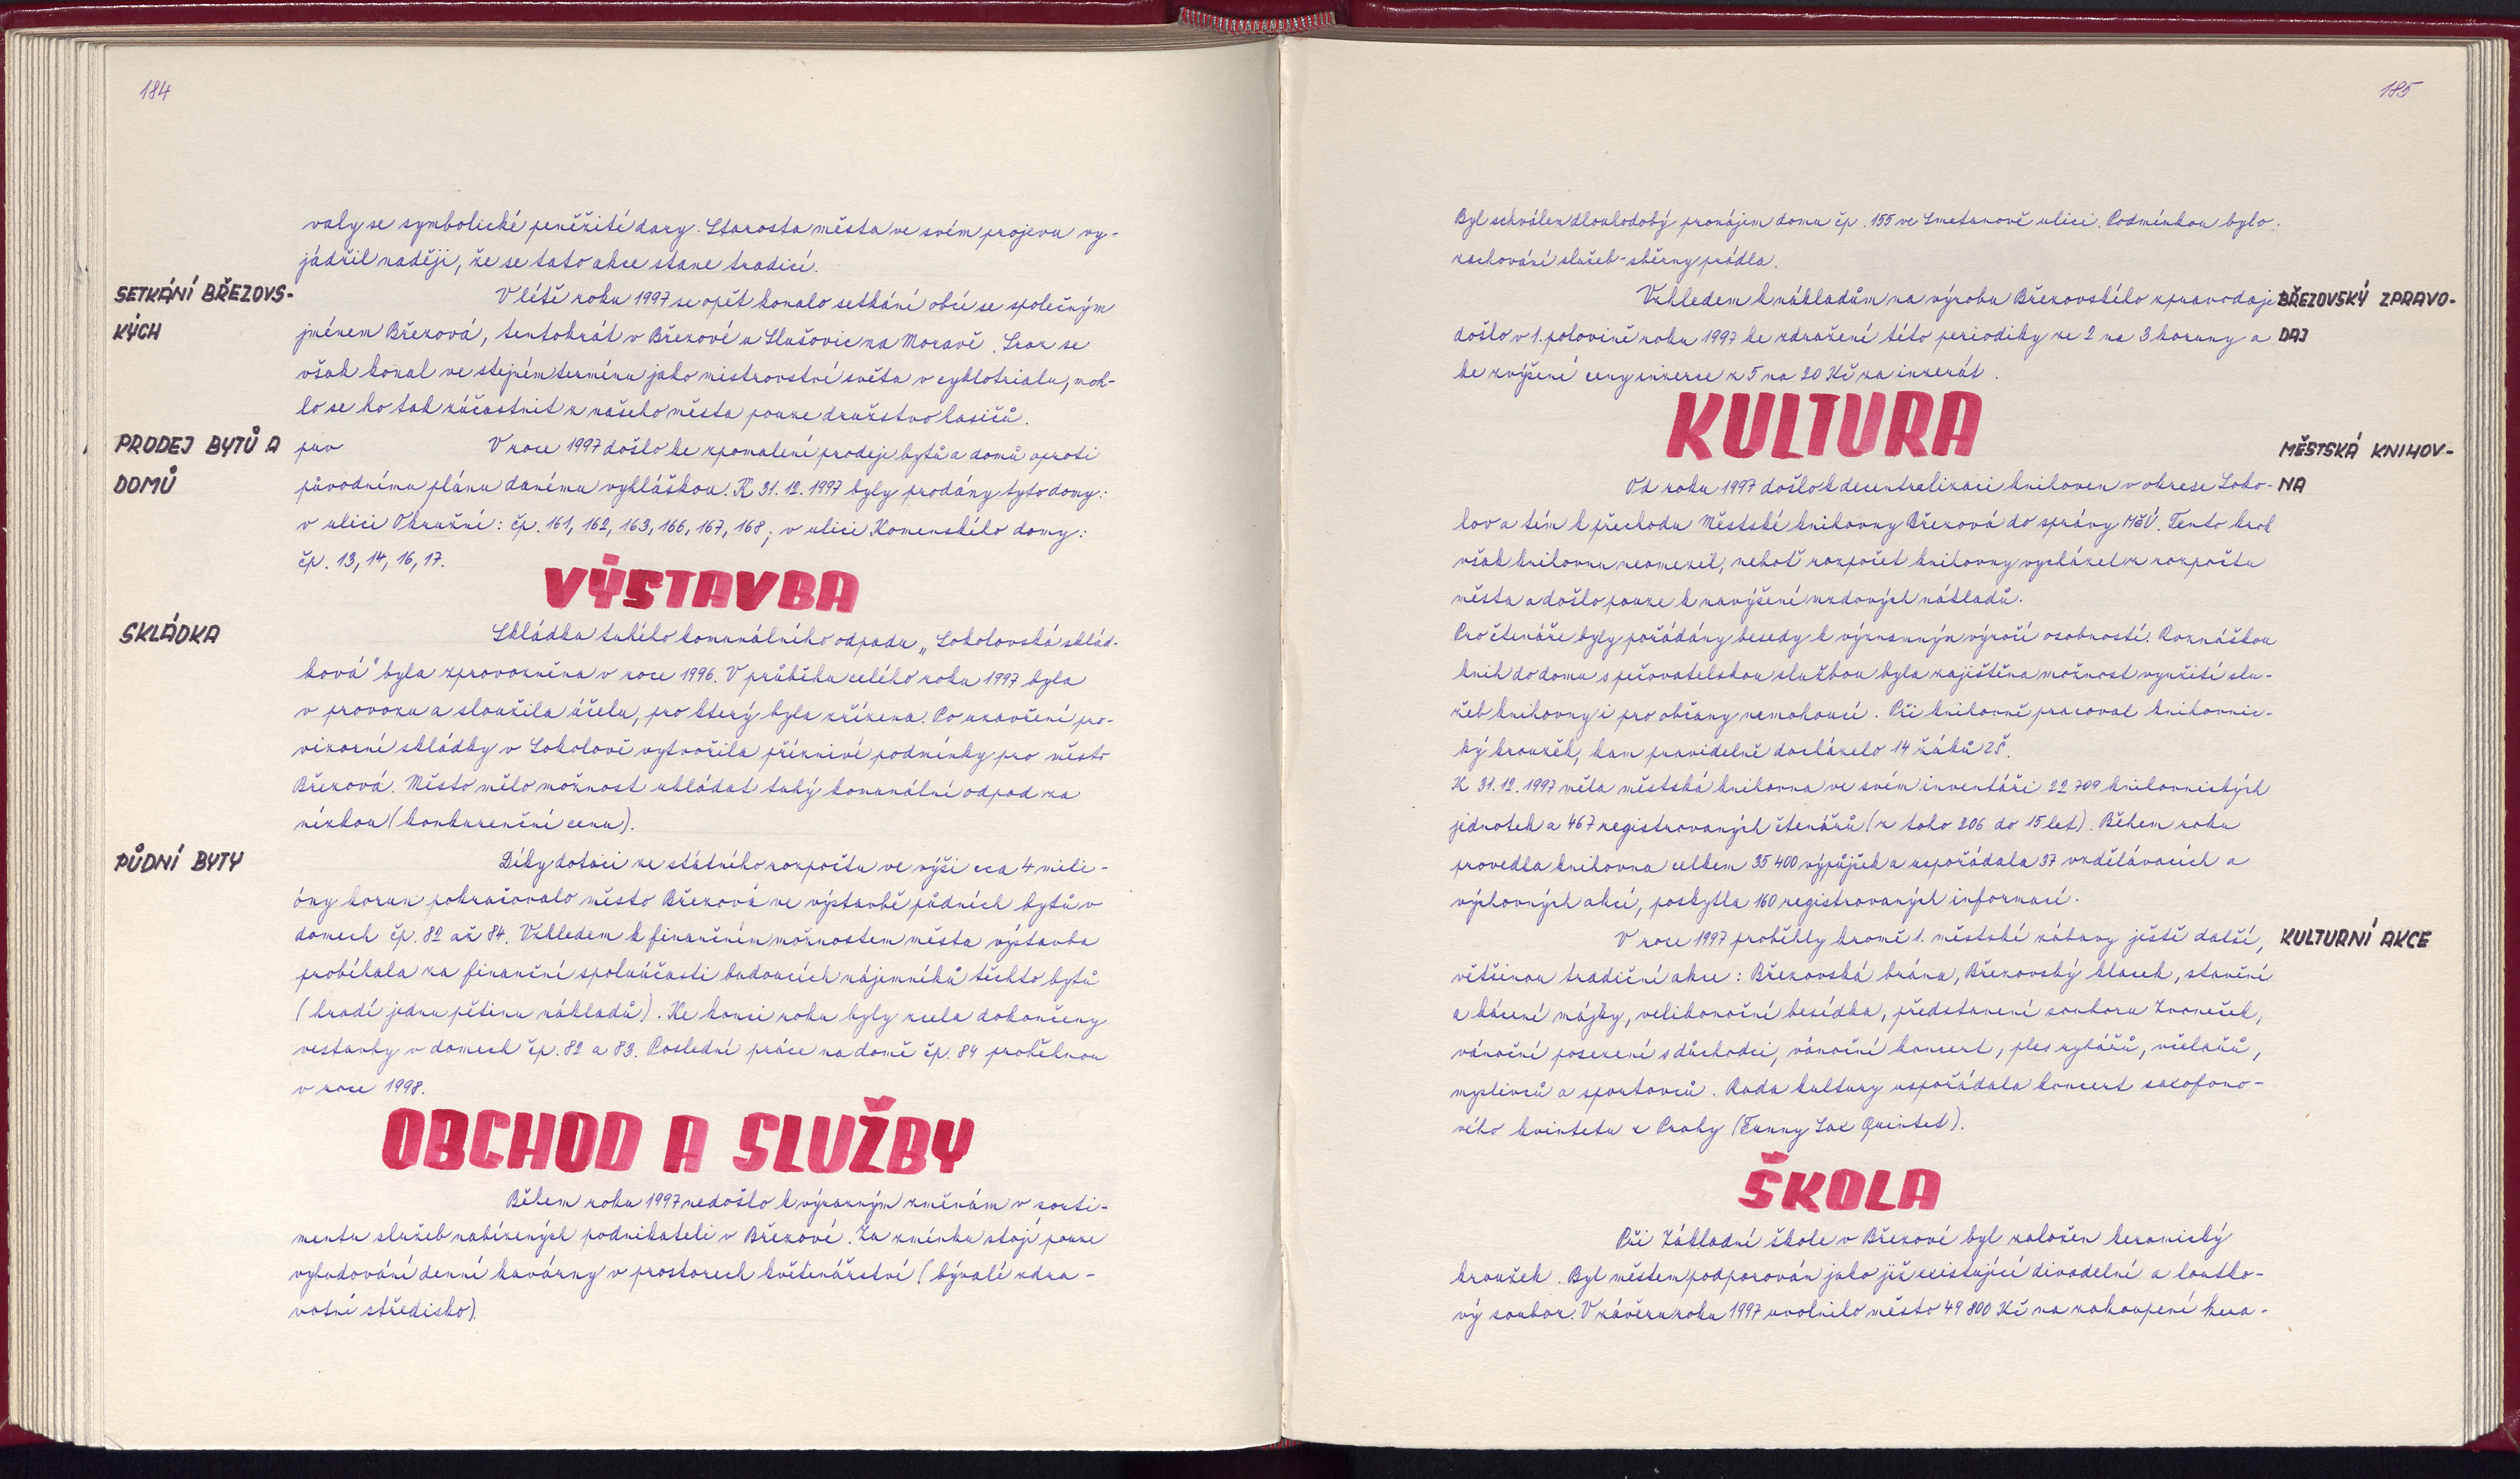 184
valy se symbolické peněžité dary. Starosta města ve svém projevu vy-
jádřil naději, že se tato akce stane tradicí.
SETKÁNÍ BŘEZOVS-
KÝCH
V létě roku 1997 se opět konalo setkání obcí se společným
jménem Březová, tentokrát v Březové u Slušovic na Moravě. Sraz se
však konal ve stejném termínu jako mistrovství světa v cyklotrialu, moh-
lo se ho tak zúčastnit z našeho města pouze družstvo hasičů.
PRODEJ BYTŮ A
DOMŮ
V roce 1997 došlo ke zpomalení prodeje bytů a domů oproti
původnímu plánu danému vyhláškou. K 31.12.1997 byly prodány tyto domy:
v ulici Okružní: čp. 161, 162, 163, 166, 167, 168; v ulici Komenského domy:
čp. 13, 14, 16, 17.
VÝSTAVBA
SKLÁDKA
Skládka tuhého komunálního odpadu „Sokolovská sklád-
ková" byla zprovozněna v roce 1996. V průběhu celého roku 1997 byla
v provozu a sloužila účelu, pro který byla zřízena. Po uzavření pro-
vizorní skládky v Sokolově vytvořila příznivé podmínky pro město
Březová. Město mělo možnost ukládat tuhý komunální odpad za
nízkou (konkurenční cenu).
PŮDNÍ BYTY
Díky dotaci ze státního rozpočtu ve výši cca 4 mili-
óny korun pokračovalo město Březová ve výstavbě půdních bytů v
domech čp. 82 až 84. Vzhledem k finančním možnostem města výstavba
probíhala za finanční spoluúčasti budoucích nájemníků těchto bytů
(hradí jednu pětinu nákladů). Ke konci roku byly zcela dokončeny
vestavby v domech čp. 82 a 83. Poslední práce na domě čp. 84 proběhnou
v roce 1998.
OBCHOD A SLUŽBY
Během roku 1997 nedošlo k výrazným změnám v sorti-
mentu služeb nabízených podnikateli v Březové. Za zmínku stojí pouze
vybudování denní kavárny v prostorech květinářství (bývalé zdra-
votní středisko).
185
Byl schválen dlouhodobý pronájem domu čp. 155 ve Smetanově ulici. Podmínkou bylo
zachování služeb - sběrny prádla.
BŘEZOVSKÝ ZPRAVO-
DAJ
Vzhledem k nákladům na výrobu Březovského zpravodaje
došlo v 1. polovině roku 1997 ke zdražení této periodiky ze 2 na 3 koruny a
ke zvýšení ceny inzerce z 5 na 20 Kč za inzerát.
KULTURA
MĚSTSKÁ KNIHOV-
NA
Od roku 1997 došlo k decentralizaci knihoven v okrese Soko-
lov a tím k přechodu Městské knihovny Březová do správy MěÚ. Tento krok
však knihovnu neomezil, neboť rozpočet knihovny vycházel z rozpočtu
města a došlo pouze k navýšení mzdových nákladů.
Pro čtenáře byly pořádány besedy k významným výročí osobností. Roznáškou
knih do domu s pečovatelskou službou byla zajištěna možnost využití slu-
žeb knihovny i pro občany nemohoucí. Při knihovně pracoval knihovnic-
ký kroužek, kam pravidelně docházelo 14 žáků ZŠ.
K 31.12.1997 měla městská knihovna ve svém inventáři 22 709 knihovnických
jednotek a 467 registrovaných čtenářů (z toho 206 do 15 let). Během roku
provedla knihovna celkem 35 400 výpůjček a uspořádala 37 vzdělávacích a
výchovných akcí, poskytla 160 registrovaných informací.
KULTURNÍ AKCE
V roce 1997 proběhly kromě 1. městské zábavy ještě další,
většinou tradiční akce: Březovská brána, Březovský hlásek, stavění
a kácení májky, velikonoční besídka, představení souboru Zvoneček,
vánoční posezení s důchodci, vánoční koncert, ples rybářů, včelařů,
myslivců a sportovců. Rada kultury uspořádala koncert saxofono-
vého kvintetu z Prahy (Funny Sax Quintet).
ŠKOLA
Při Základní škole v Březové byl založen keramický
kroužek. Byl městem podporován jako již existující divadelní a loutko-
vý soubor. V závěru roku 1997 uvolnilo město 49 800 Kč na zakoupení kera-